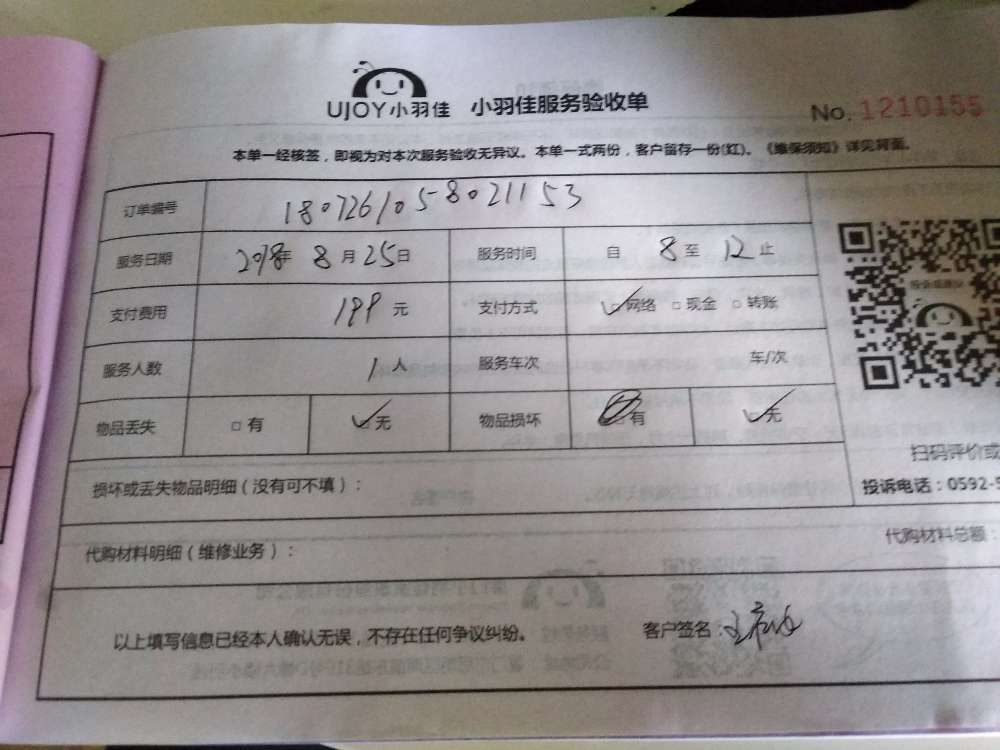 UJOY小羽佳 小羽佳服务验收单 No. 1210155
本单一经核签，即视为对本次服务验收无异议。本单一式两份，客户留存一份(红)。《维保须知》详见背面。
订单编号 1807261058021153
服务日期 2018年 8月25日 服务时间 自 8 至 12 止
支付费用 199 元 支付方式 ☑网络 □现金 □转账
服务人数 1人 服务车次 车/次
物品丢失 □有 ☑无 物品损坏 □有 ☑无
扫码评价或
损坏或丢失物品明细（没有可不填）： 投诉电话：0592-5
代购材料明细（维修业务）： 代购材料总额：
以上填写信息已经本人确认无误，不存在任何争议纠纷。 客户签名：